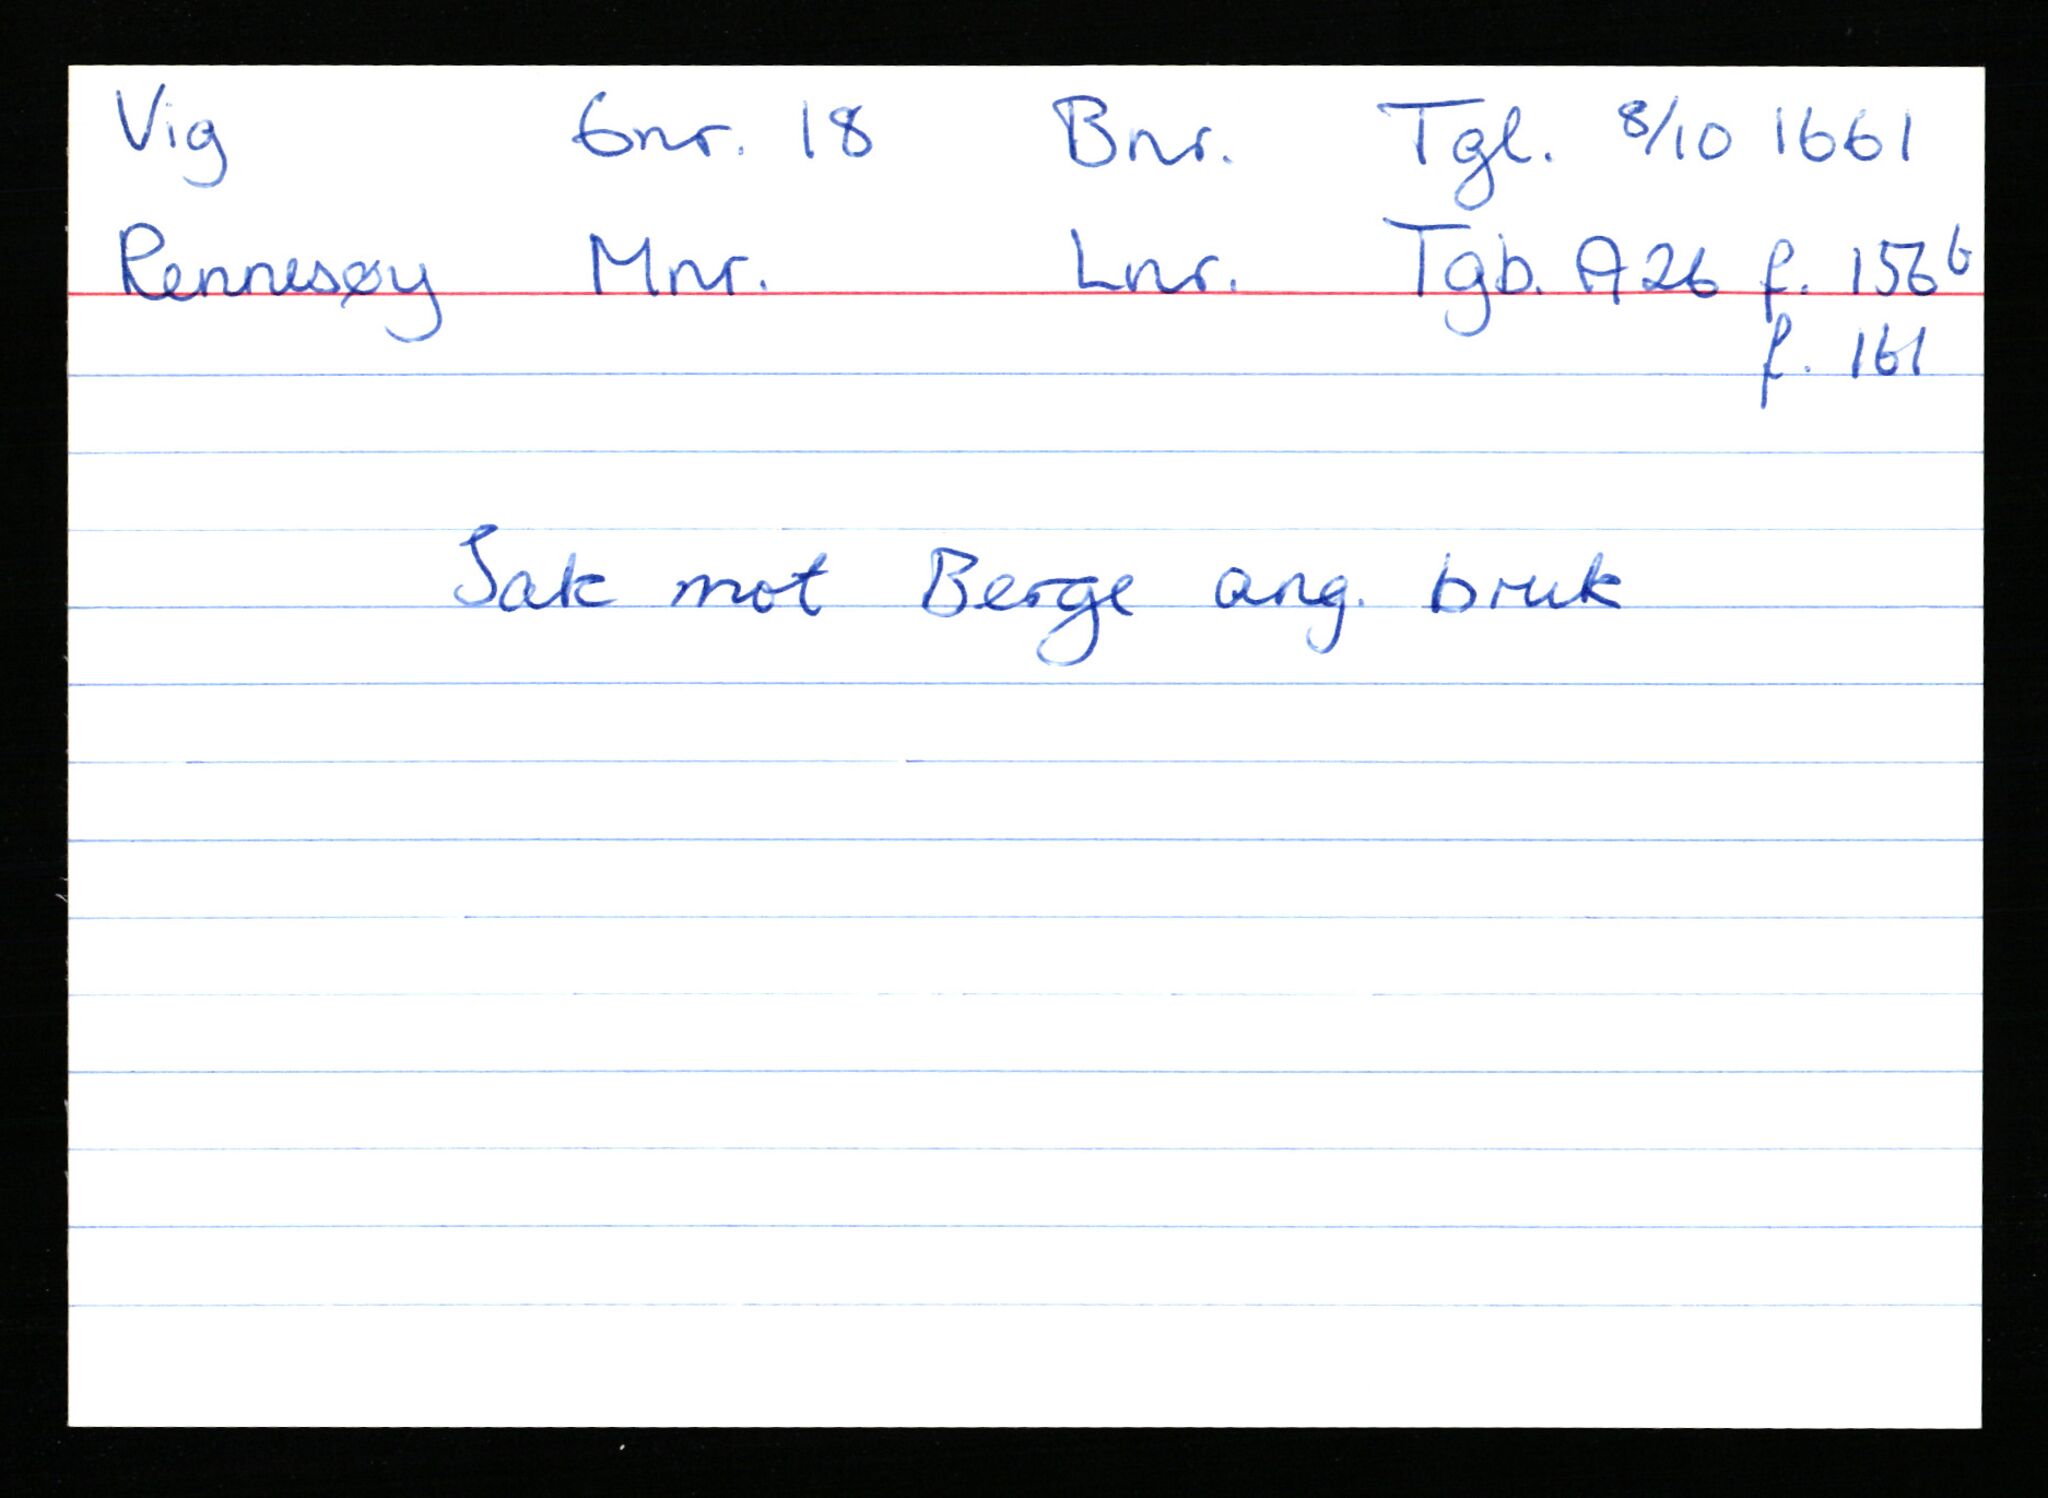 Vig Gnr. 18 Bnr. Tgl. 8/10 1661
Rennesøy Mnr. Lnr. Tgb. A 26 f. 156b
f. 161
Sak mot Berge ang. bruk